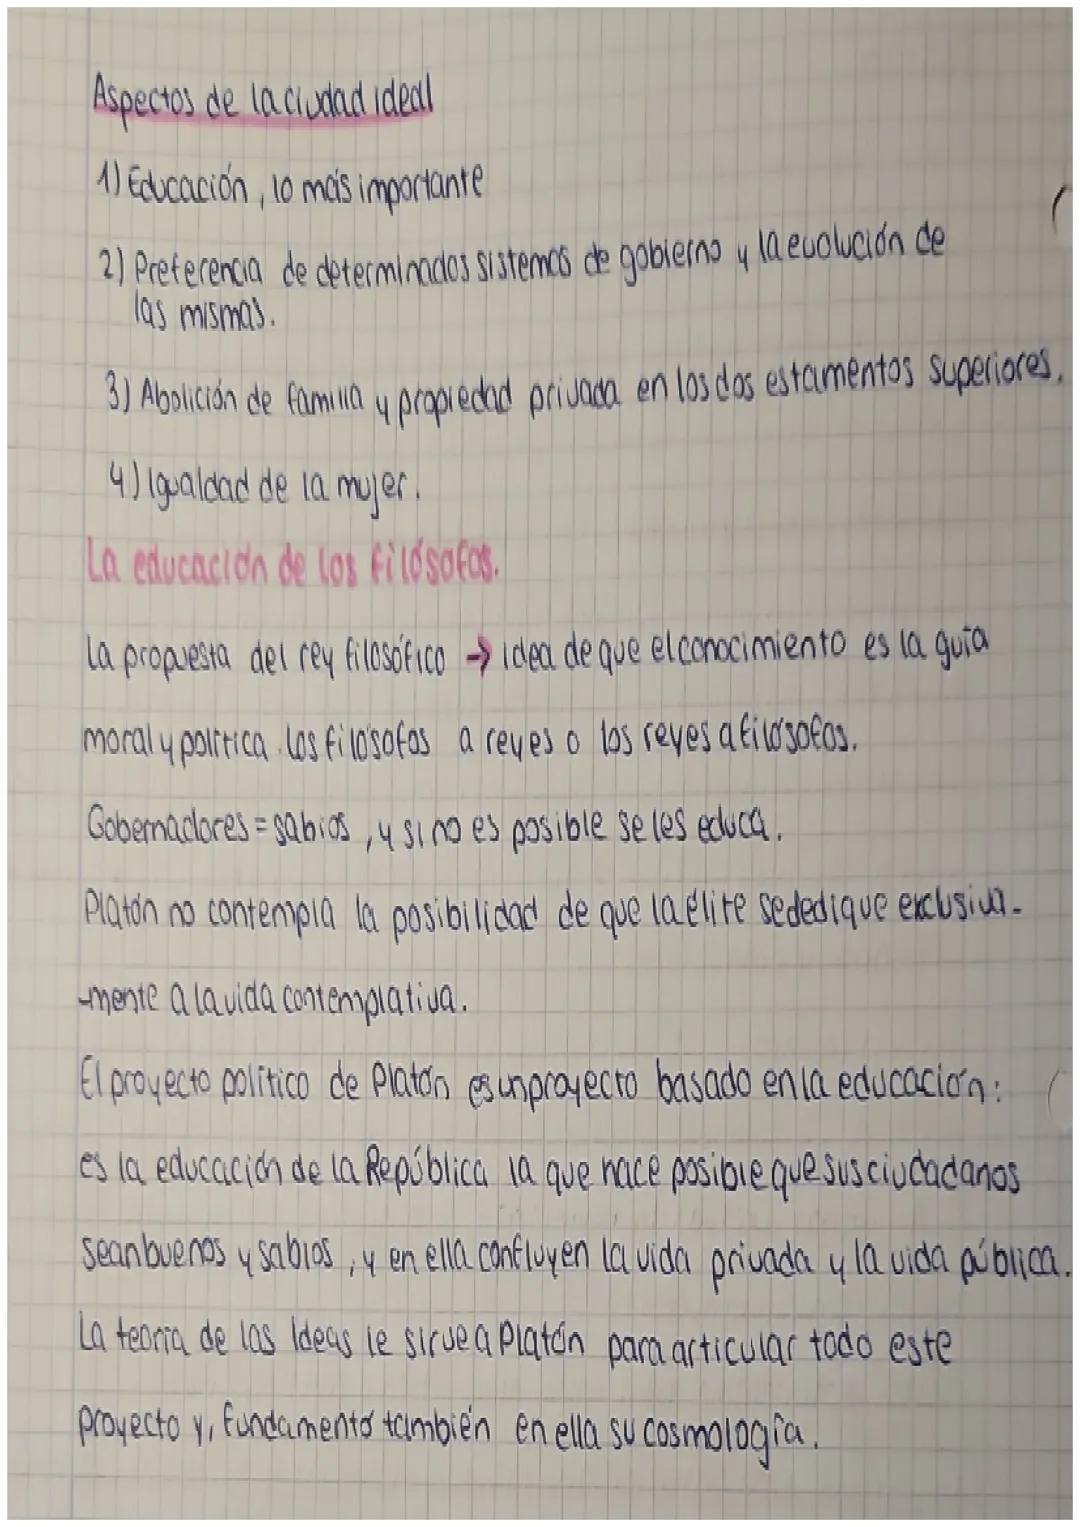 Aspectos de la ciudad ideal
1) Educación, lo más importante
2) Preferencia de determinados sistemas de gobierno y la evolución de
las mismas.
3) Abolición de familia y propiedad privada en los dos estamentos superiores.
4) Igualdad de la mujer.
La educación de los filósofos.
La propuesta del rey filosófico → idea de que el conocimiento es la guía
moral y política. Los filósofos a reyes o los reyes a filósofos.
Gobernadores = sabios, y si no es posible se les educa.
Platón no contempla la posibilidad de que la élite se dedique exclusiva-
-mente a la vida contemplativa.
El proyecto político de Platón es un proyecto basado en la educación:
es la educación de la República la que hace posible que sus ciudadanos
sean buenos y sabios, y en ella confluyen la vida privada y la vida pública.
La teoría de las Ideas le sirve a Platón para articular todo este
proyecto y, fundamentó también en ella su cosmología.